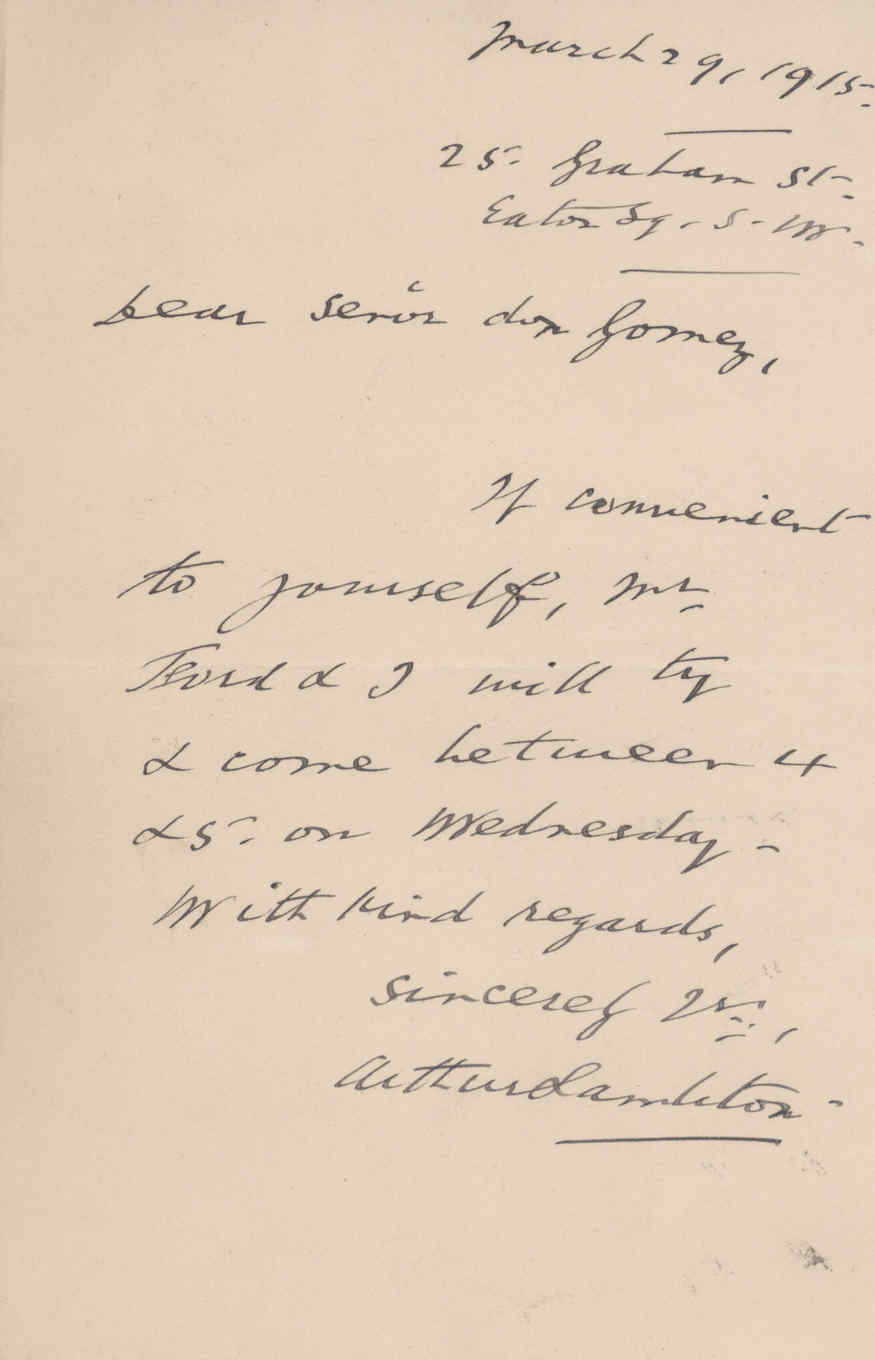 March 29, 1915.
25. Graham St.
Eaton Sq. S. W.
Dear Señor don Gomez,
If convenient
to yourself, Mr.
& I will try
& come between 4
& 5. on Wednesday -
With kind regards,
sincerely yrs.,
Arthur Lambton.